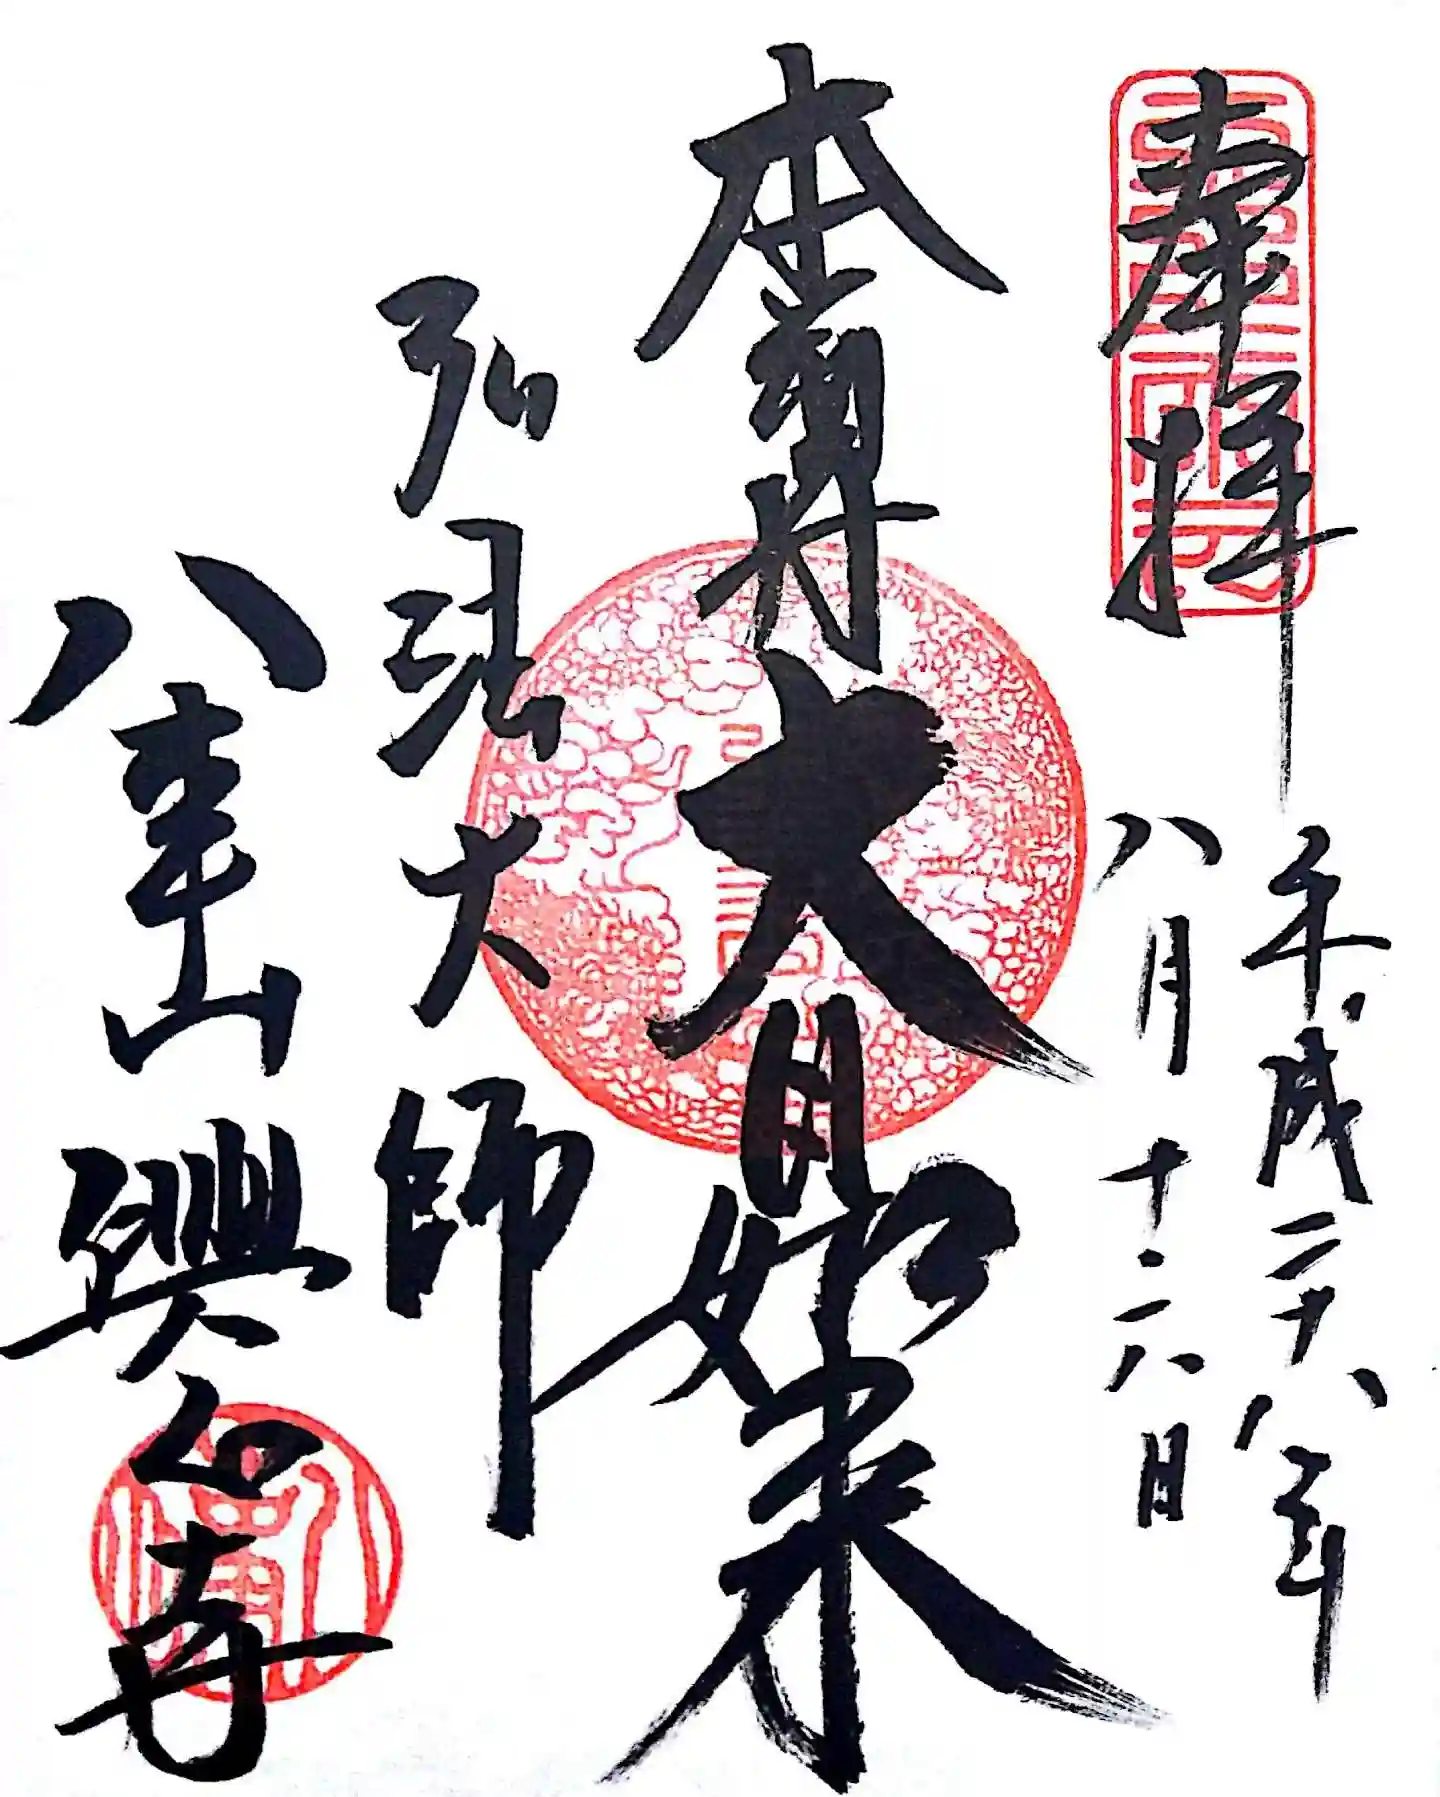 奉拝
平成二十八年
八月十六日
本尊大日如来
弘法大師
八事山興正寺